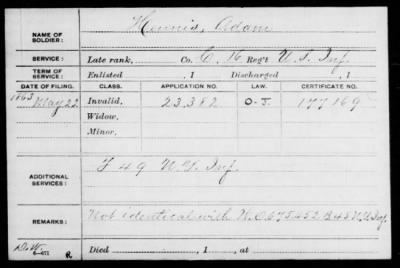 NAME OF SOLDIER: Hennis, Adam
SERVICE: Late rank, Co. C, 16 Reg't U.S. Inf.
TERM OF SERVICE: Enlisted , 1 Discharged , 1
DATE OF FILING. CLASS. APPLICATION NO. LAW. CERTIFICATE NO.
1863
May 22 Invalid, 23,382 O-J. 177169
Widow,
Minor,
ADDITIONAL SERVICES: F 49 U.S. Inf.
REMARKS: Not identical with W.C. 675452 B 45 U.S. Inf.
Died , 1 , at
6-471